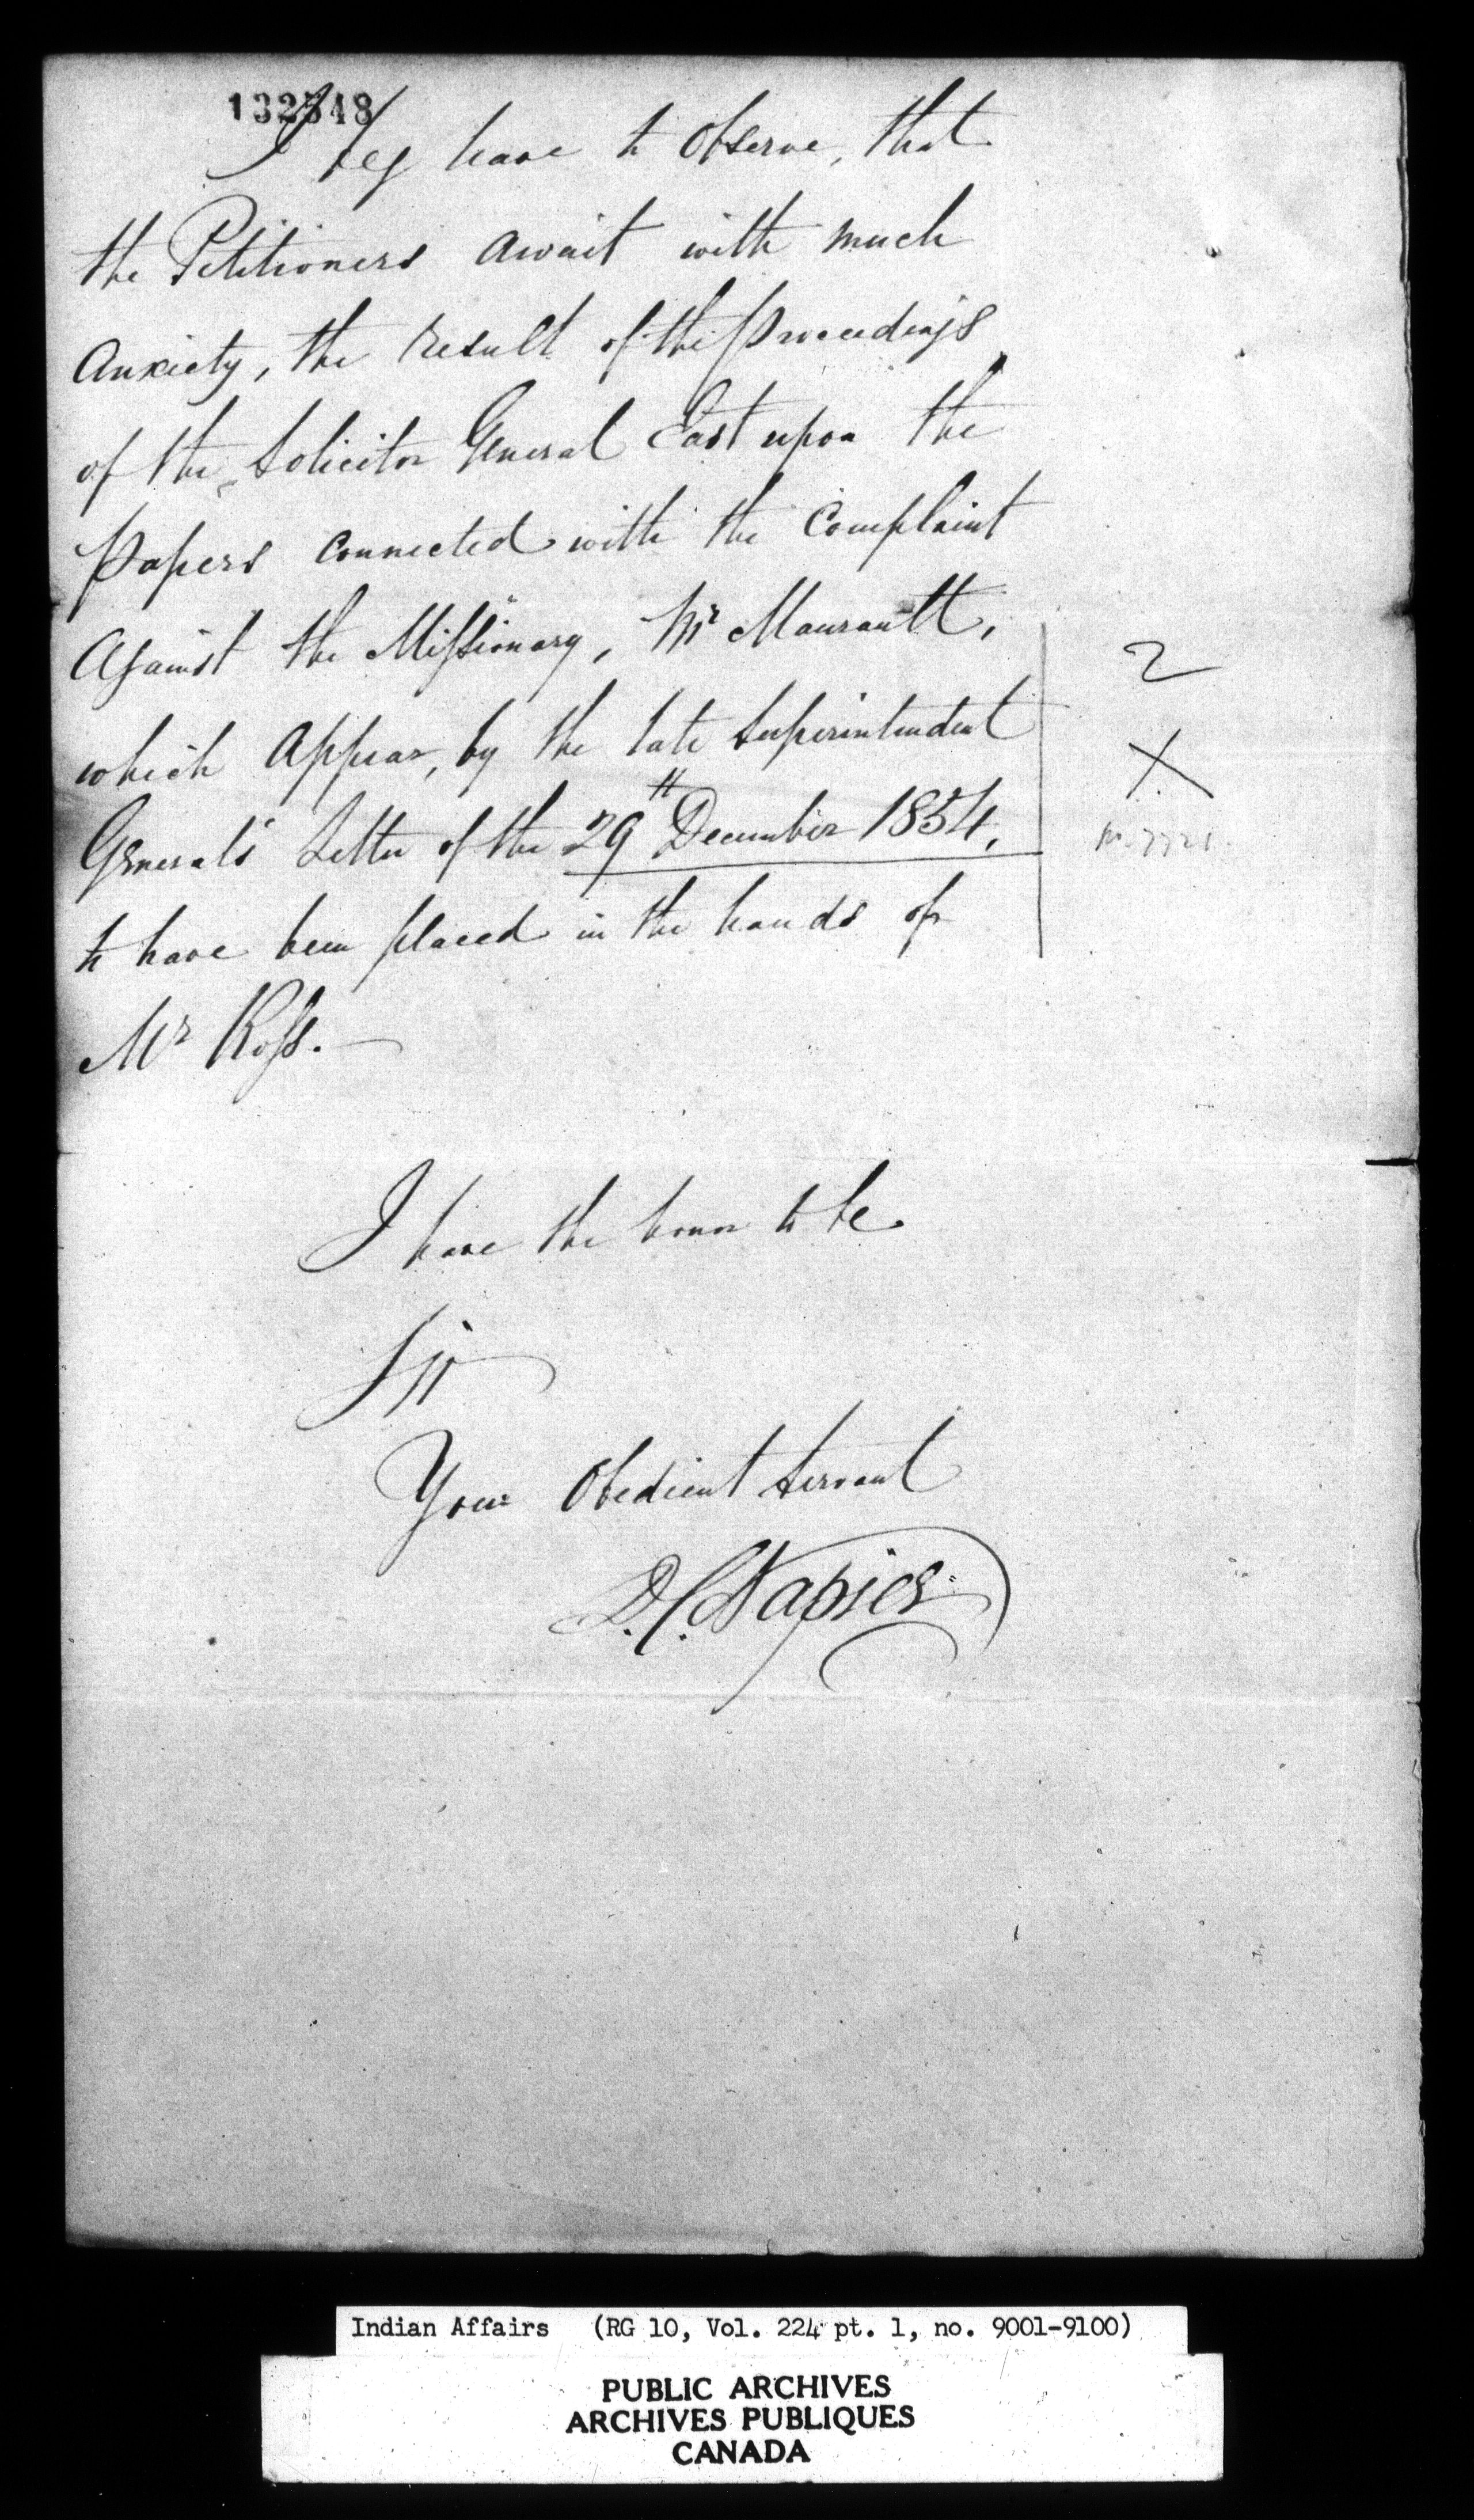 132548
I beg leave to Observe, that
the Petitioners await with much
Anxiety, the Result of the Proceedings
of the Solicitor General East upon the
Papers connected with the Complaint
Against the Missionary, Mr Maurault,
which Appear, by the late Superintendent
General's Letter of the 29th December 1854,
to have been placed in the hands of
Mr Ross.—
2
X
I have the honor to be
Sir
Your Obedient Servant
D. C. Napier
Indian Affairs (RG 10, Vol. 224 pt. 1, no. 9001-9100)
PUBLIC ARCHIVES
ARCHIVES PUBLIQUES
CANADA